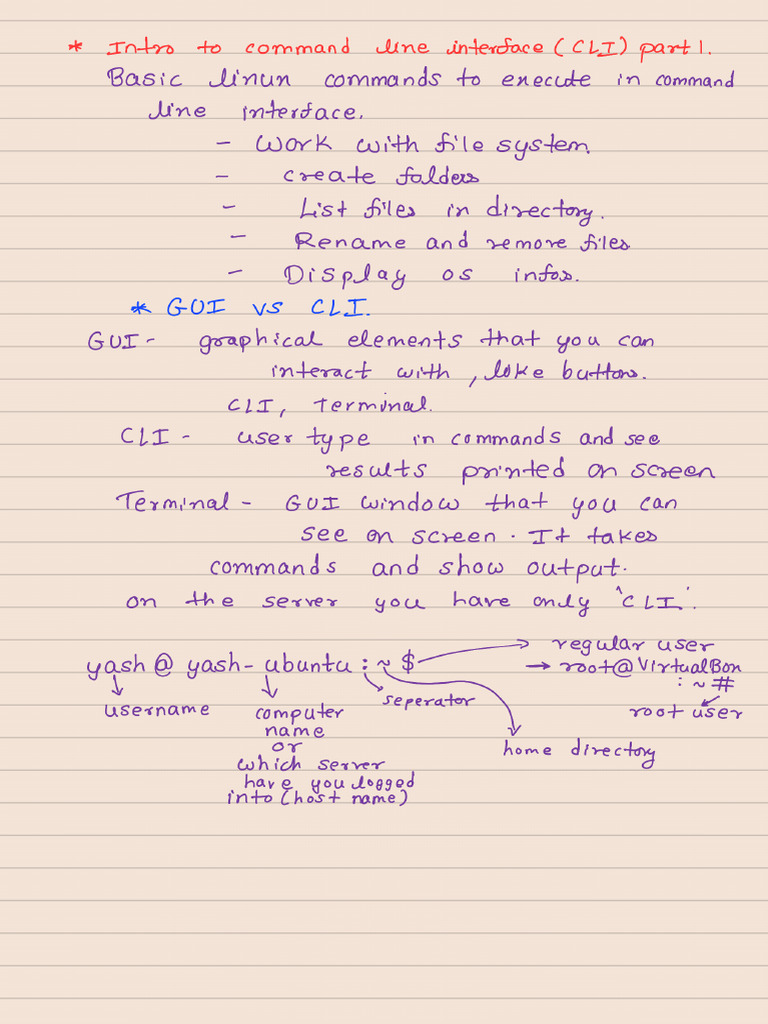 * Intro to command line interface (CLI) part 1.
Basic linux commands to execute in command
line interface.
- Work with file system.
- create folders
- List files in directory.
- Rename and remove files
- Display os infos.
* GUI vs CLI.
GUI - graphical elements that you can
interact with, like buttons.
CLI, Terminal.
CLI - user type in commands and see
results printed on screen
Terminal - GUI window that you can
see on screen. It takes
commands and show output.
on the server you have only 'CLI'.
regular user
yash@yash-ubuntu:~$ → root@VirtualBox
:~#
username
computer
name
or
which server
have you logged
into (host name)
seperator
home directory
root user